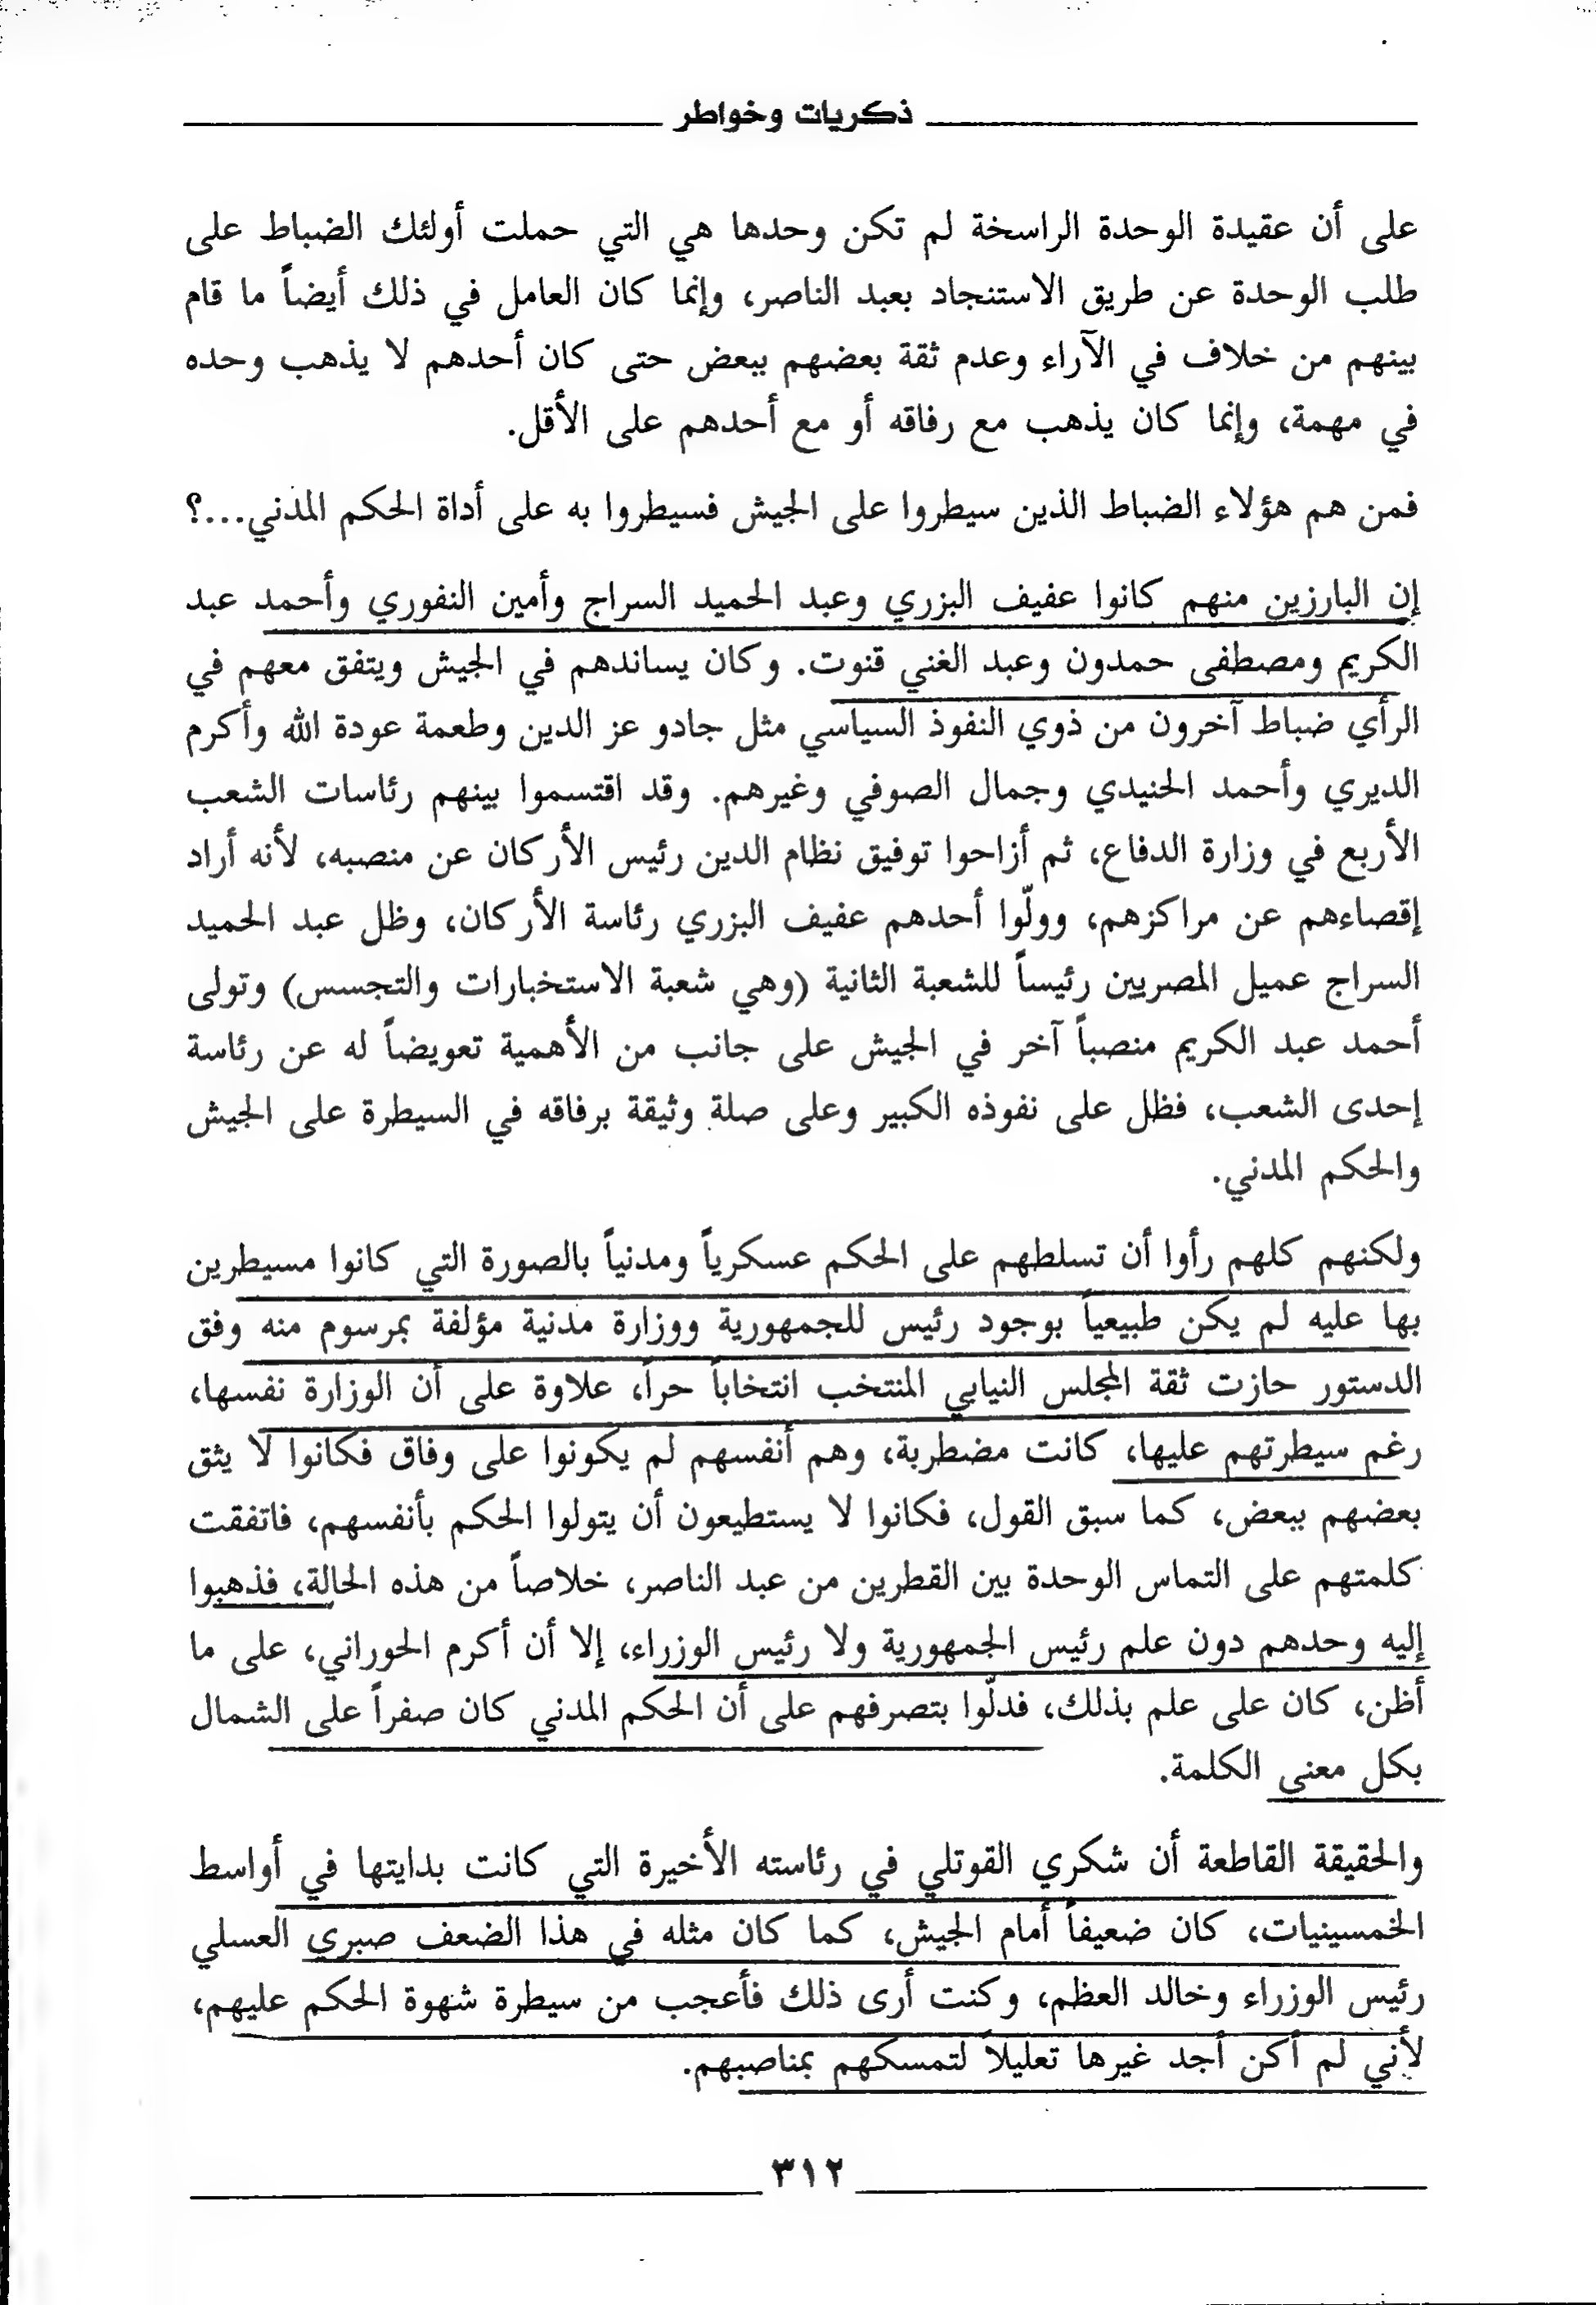 ذكريات وخواطر
على أن عقيدة الوحدة الراسخة لم تكن وحدها هي التي حملت أولئك الضباط على
طلب الوحدة عن طريق الاستنجاد بعبد الناصر، وإنما كان العامل في ذلك أيضاً ما قام
بينهم من خلاف في الآراء وعدم ثقة بعضهم ببعض حتى كان أحدهم لا يذهب وحده
في مهمة، وإنما كان يذهب مع رفاقه أو مع أحدهم على الأقل.
فمن هم هؤلاء الضباط الذين سيطروا على الجيش فسيطروا به على أداة الحكم المدني...؟
إن البارزين منهم كانوا عفيف البزري وعبد الحميد السراج وأمين النفوري وأحمد عبد
الكريم ومصطفى حمدون وعبد الغني قنوت. وكان يساندهم في الجيش ويتفق معهم في
الرأي ضباط آخرون من ذوي النفوذ السياسي مثل جادو عز الدين وطعمة عودة الله وأكرم
الديري وأحمد الحنيدي وجمال الصوفي وغيرهم. وقد اقتسموا بينهم رئاسات الشعب
الأربع في وزارة الدفاع، ثم أزاحوا توفيق نظام الدين رئيس الأركان عن منصبه، لأنه أراد
إقصاءهم عن مراكزهم، وولّوا أحدهم عفيف البزري رئاسة الأركان، وظل عبد الحميد
السراج عميل المصريين رئيساً للشعبة الثانية (وهي شعبة الاستخبارات والتجسس) وتولى
أحمد عبد الكريم منصباً آخر في الجيش على جانب من الأهمية تعويضاً له عن رئاسة
إحدى الشعب، فظل على نفوذه الكبير وعلى صلة وثيقة برفاقه في السيطرة على الجيش
والحكم المدني.
ولكنهم كلهم رأوا أن تسلطهم على الحكم عسكرياً ومدنياً بالصورة التي كانوا مسيطرين
بها عليه لم يكن طبيعياً بوجود رئيس للجمهورية ووزارة مدنية مؤلفة بمرسوم منه وفق
الدستور حازت ثقة المجلس النيابي المنتخب انتخاباً حراً، علاوة على أن الوزارة نفسها،
رغم سيطرتهم عليها، كانت مضطربة، وهم أنفسهم لم يكونوا على وفاق فكانوا لا يثق
بعضهم ببعض، كما سبق القول، فكانوا لا يستطيعون أن يتولوا الحكم بأنفسهم، فاتفقت
كلمتهم على التماس الوحدة بين القطرين من عبد الناصر، خلاصاً من هذه الحالة، فذهبوا
إليه وحدهم دون علم رئيس الجمهورية ولا رئيس الوزراء، إلا أن أكرم الحوراني، على ما
أظن، كان على علم بذلك، فدلّوا بتصرفهم على أن الحكم المدني كان صفراً على الشمال
بكل معنى الكلمة.
والحقيقة القاطعة أن شكري القوتلي في رئاسته الأخيرة التي كانت بدايتها في أواسط
الخمسينيات، كان ضعيفاً أمام الجيش، كما كان مثله في هذا الضعف صبري العسلي
رئيس الوزراء وخالد العظم، وكنت أرى ذلك فأعجب من سيطرة شهوة الحكم عليهم،
لأني لم أكن أجد غيرها تعليلاً لتمسكهم بمناصبهم.
٣١٢